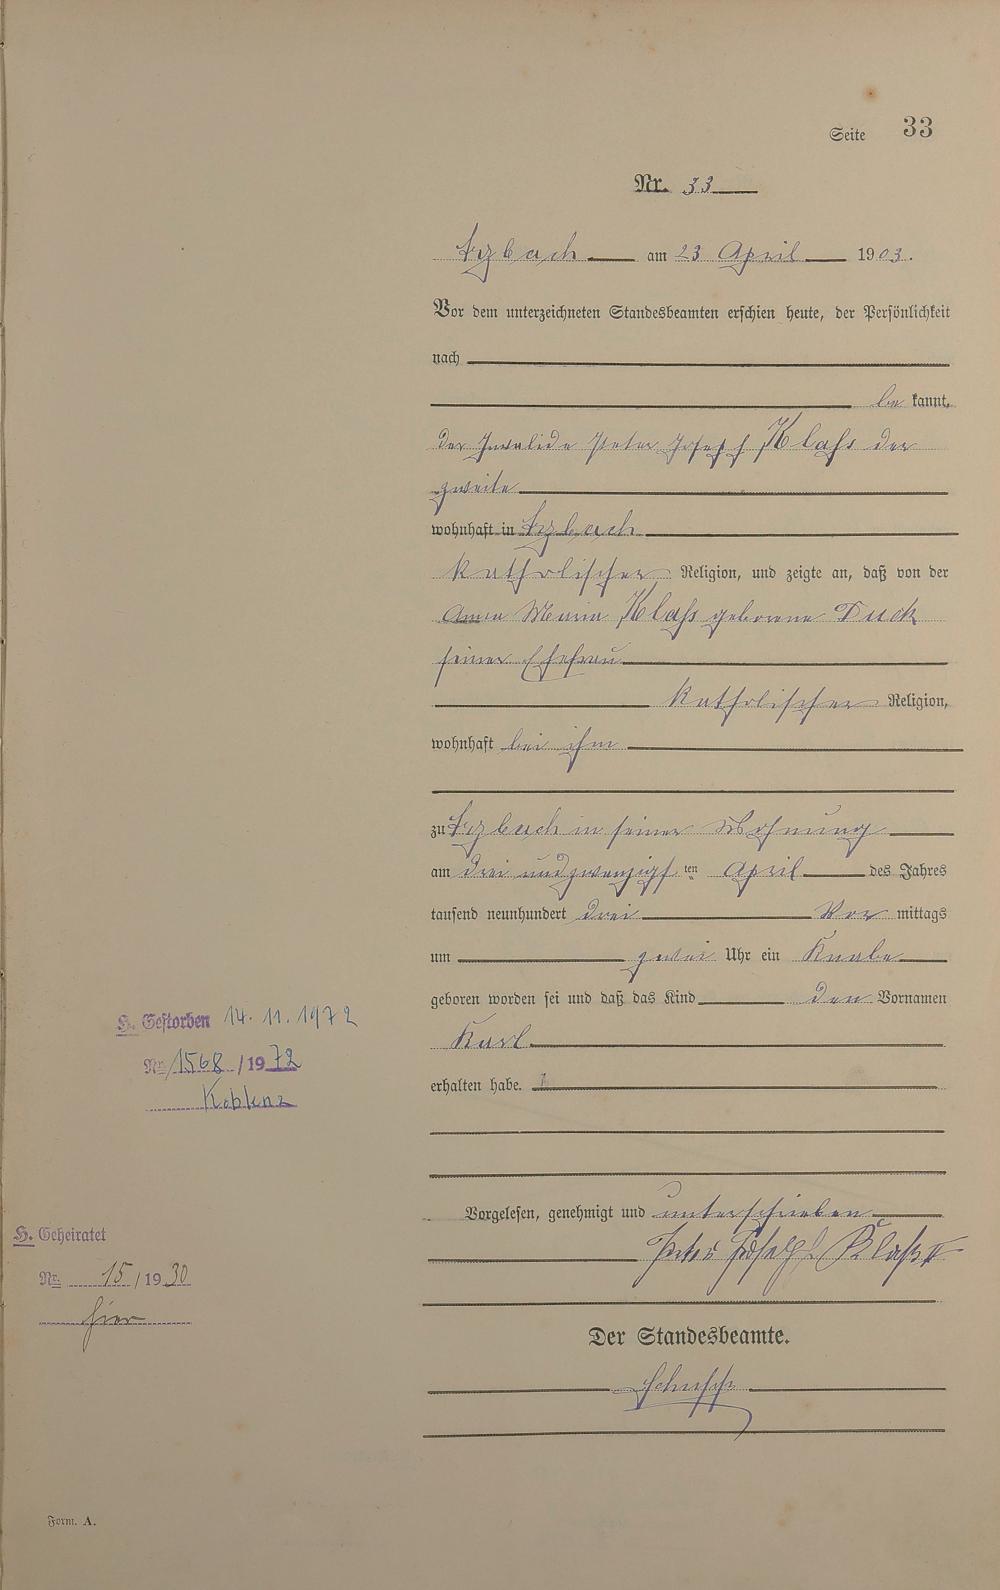 Seite 33
Nr. 33
Arzbach am 23 April 1903.
Vor dem unterzeichneten Standesbeamten erschien heute, der Persönlichkeit
nach
be kannt,
der Invalide Peter Joseph Klaß der
zweite
wohnhaft in Arzbach
katholischer Religion, und zeigte an, daß von der
Anna Maria Klaß geborene Duck
seiner Ehefrau
katholischer Religion,
wohnhaft bei ihm
zu Arzbach in seiner Wohnung
am drei und zwanzigsten April des Jahres
tausend neunhundert drei Vor mittags
um zwei Uhr ein Knabe
geboren worden sei und daß das Kind den Vornamen
Karl
erhalten habe.
Vorgelesen, genehmigt und unterschrieben
Peter Joseph Klaß II
Der Standesbeamte.
H. Gestorben 14.11.1972
Nr. 1568/1972
Koblenz
H. Geheiratet
Nr. 15/1930
hier
Form. A.